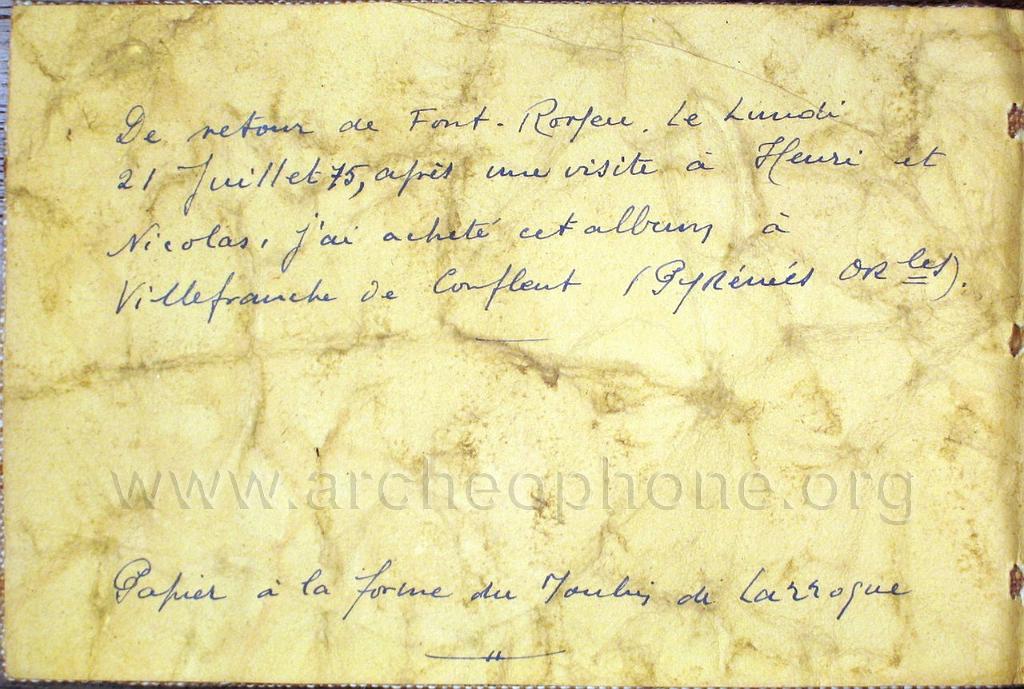 De retour de Font-Romeu. Le Lundi
21 Juillet 75, après une visite à Henri et
Nicolas, j'ai acheté cet album à
Villefranche de Conflent (Pyrénées OR les).
www.archeophone.org
Papier à la forme du Moulin de Larroque